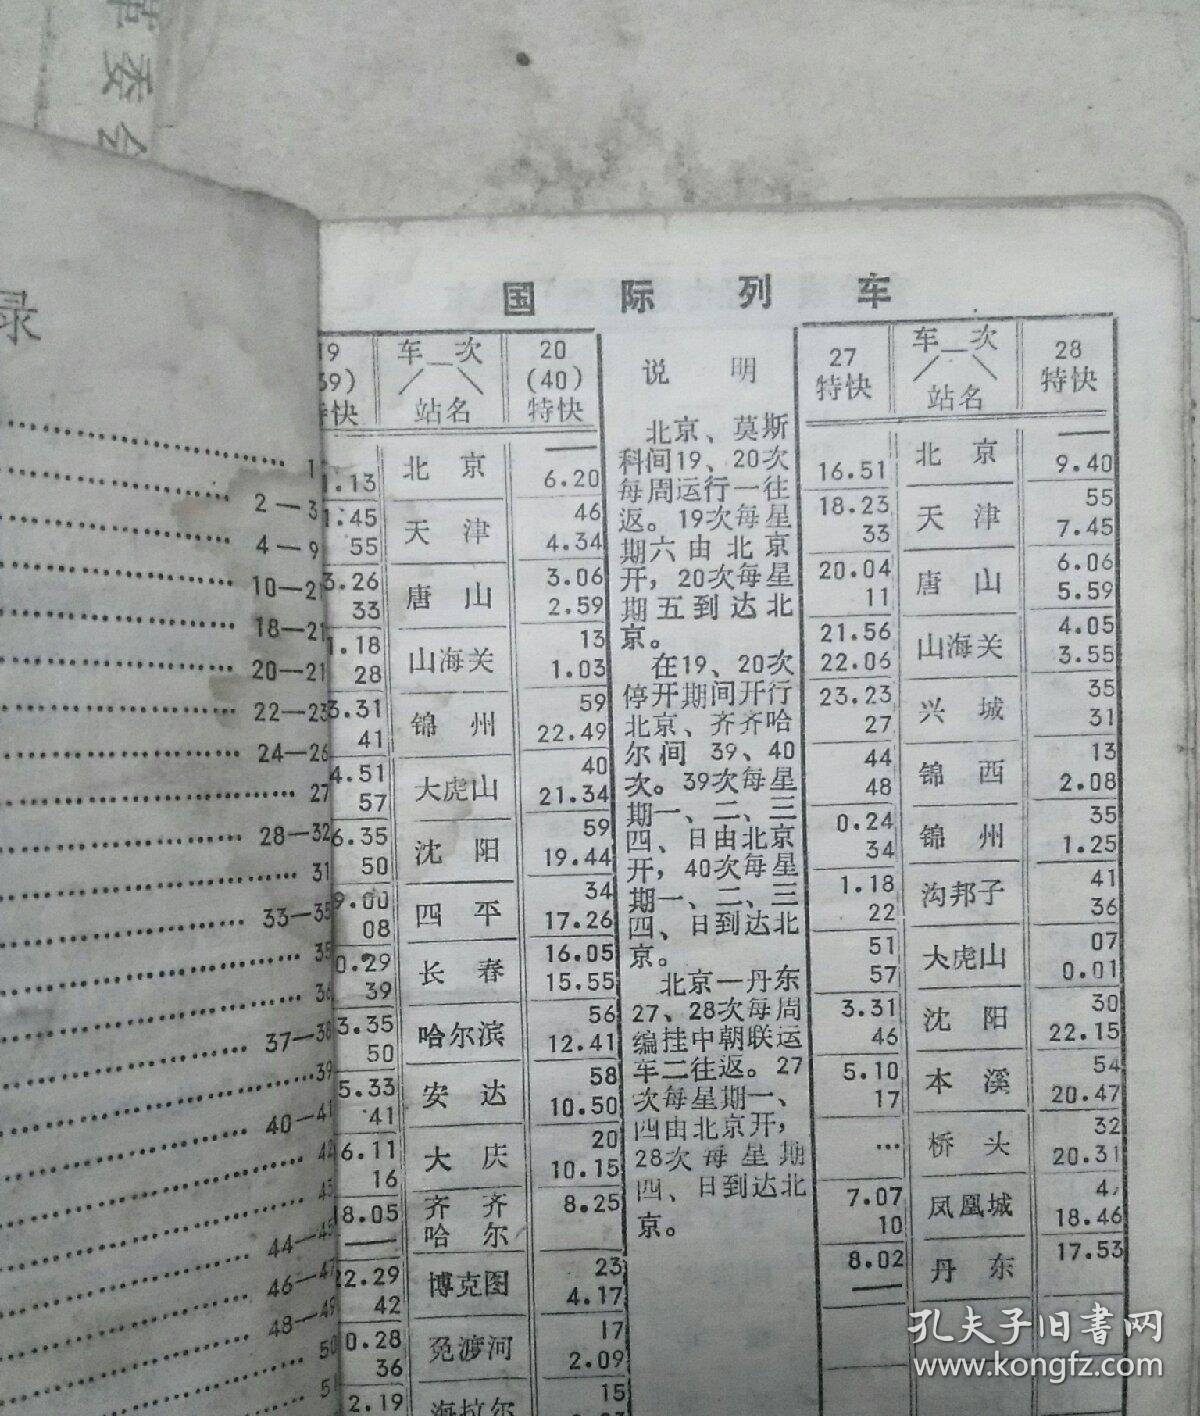 革委会
录
1
2—3
4—9
10—21
18—21
20—21
22—23
24—26
27
28—32
31
33—35
35
36
37—38
39
40—41
42
43
44—45
46—47
48—49
50
51
国际列车
车次
20
站名
(40)
特快
北京
6.20
天津
46
4.34
唐山
3.06
2.59
山海关
13
1.03
锦州
59
22.49
大虎山
40
21.34
沈阳
59
19.44
四平
34
17.26
长春
16.05
15.55
哈尔滨
56
12.41
安达
58
10.50
大庆
20
10.15
齐齐
哈尔
8.25
博克图
23
4.17
免渡河
17
2.09
海拉尔
15
55
33
28
41
57
6.35
50
9.00
08
39
3.35
50
5.33
41
6.11
16
8.05
22.29
42
0.28
36
2.19
说明
北京、莫斯
科间19、20次
每周运行一往
返。19次每星
期六由北京
开，20次每星
期五到达北
京。
在19、20次
停开期间开行
北京、齐齐哈
尔间39、40
次。39次每星
期一、二、三
四、日由北京
开，40次每星
期一、二、三
四、日到达北
京。
北京—丹东
27、28次每周
编挂中朝联运
车二往返。27
次每星期一、
四由北京开，
28次每星期
四、日到达北
京。
27
特快
车次
站名
28
特快
16.51
北京
9.40
18.23
天津
55
33
7.45
20.04
唐山
6.06
11
5.59
21.56
山海关
4.05
22.06
3.55
23.23
兴城
35
27
31
44
锦西
13
48
2.08
0.24
锦州
35
34
1.25
1.18
沟邦子
41
22
36
51
大虎山
07
57
0.01
3.31
沈阳
30
46
22.15
5.10
本溪
54
17
20.47
…
桥头
32
20.31
7.07
凤凰城
10
18.46
8.02
丹东
17.53
孔夫子旧书网
www.kongfz.com